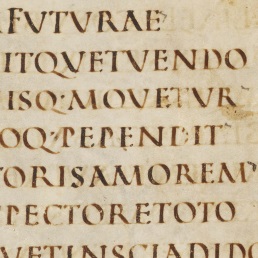 FUTURAE
ITQUETUENDO
ISQ·MOUETUR
OQ·PEPENDIT
TORISAMOREM
PECTORETOTO
UETINSCIADIDO